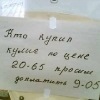 Кто купил
кулич по цене
20-65 просим
доплатить 9-05